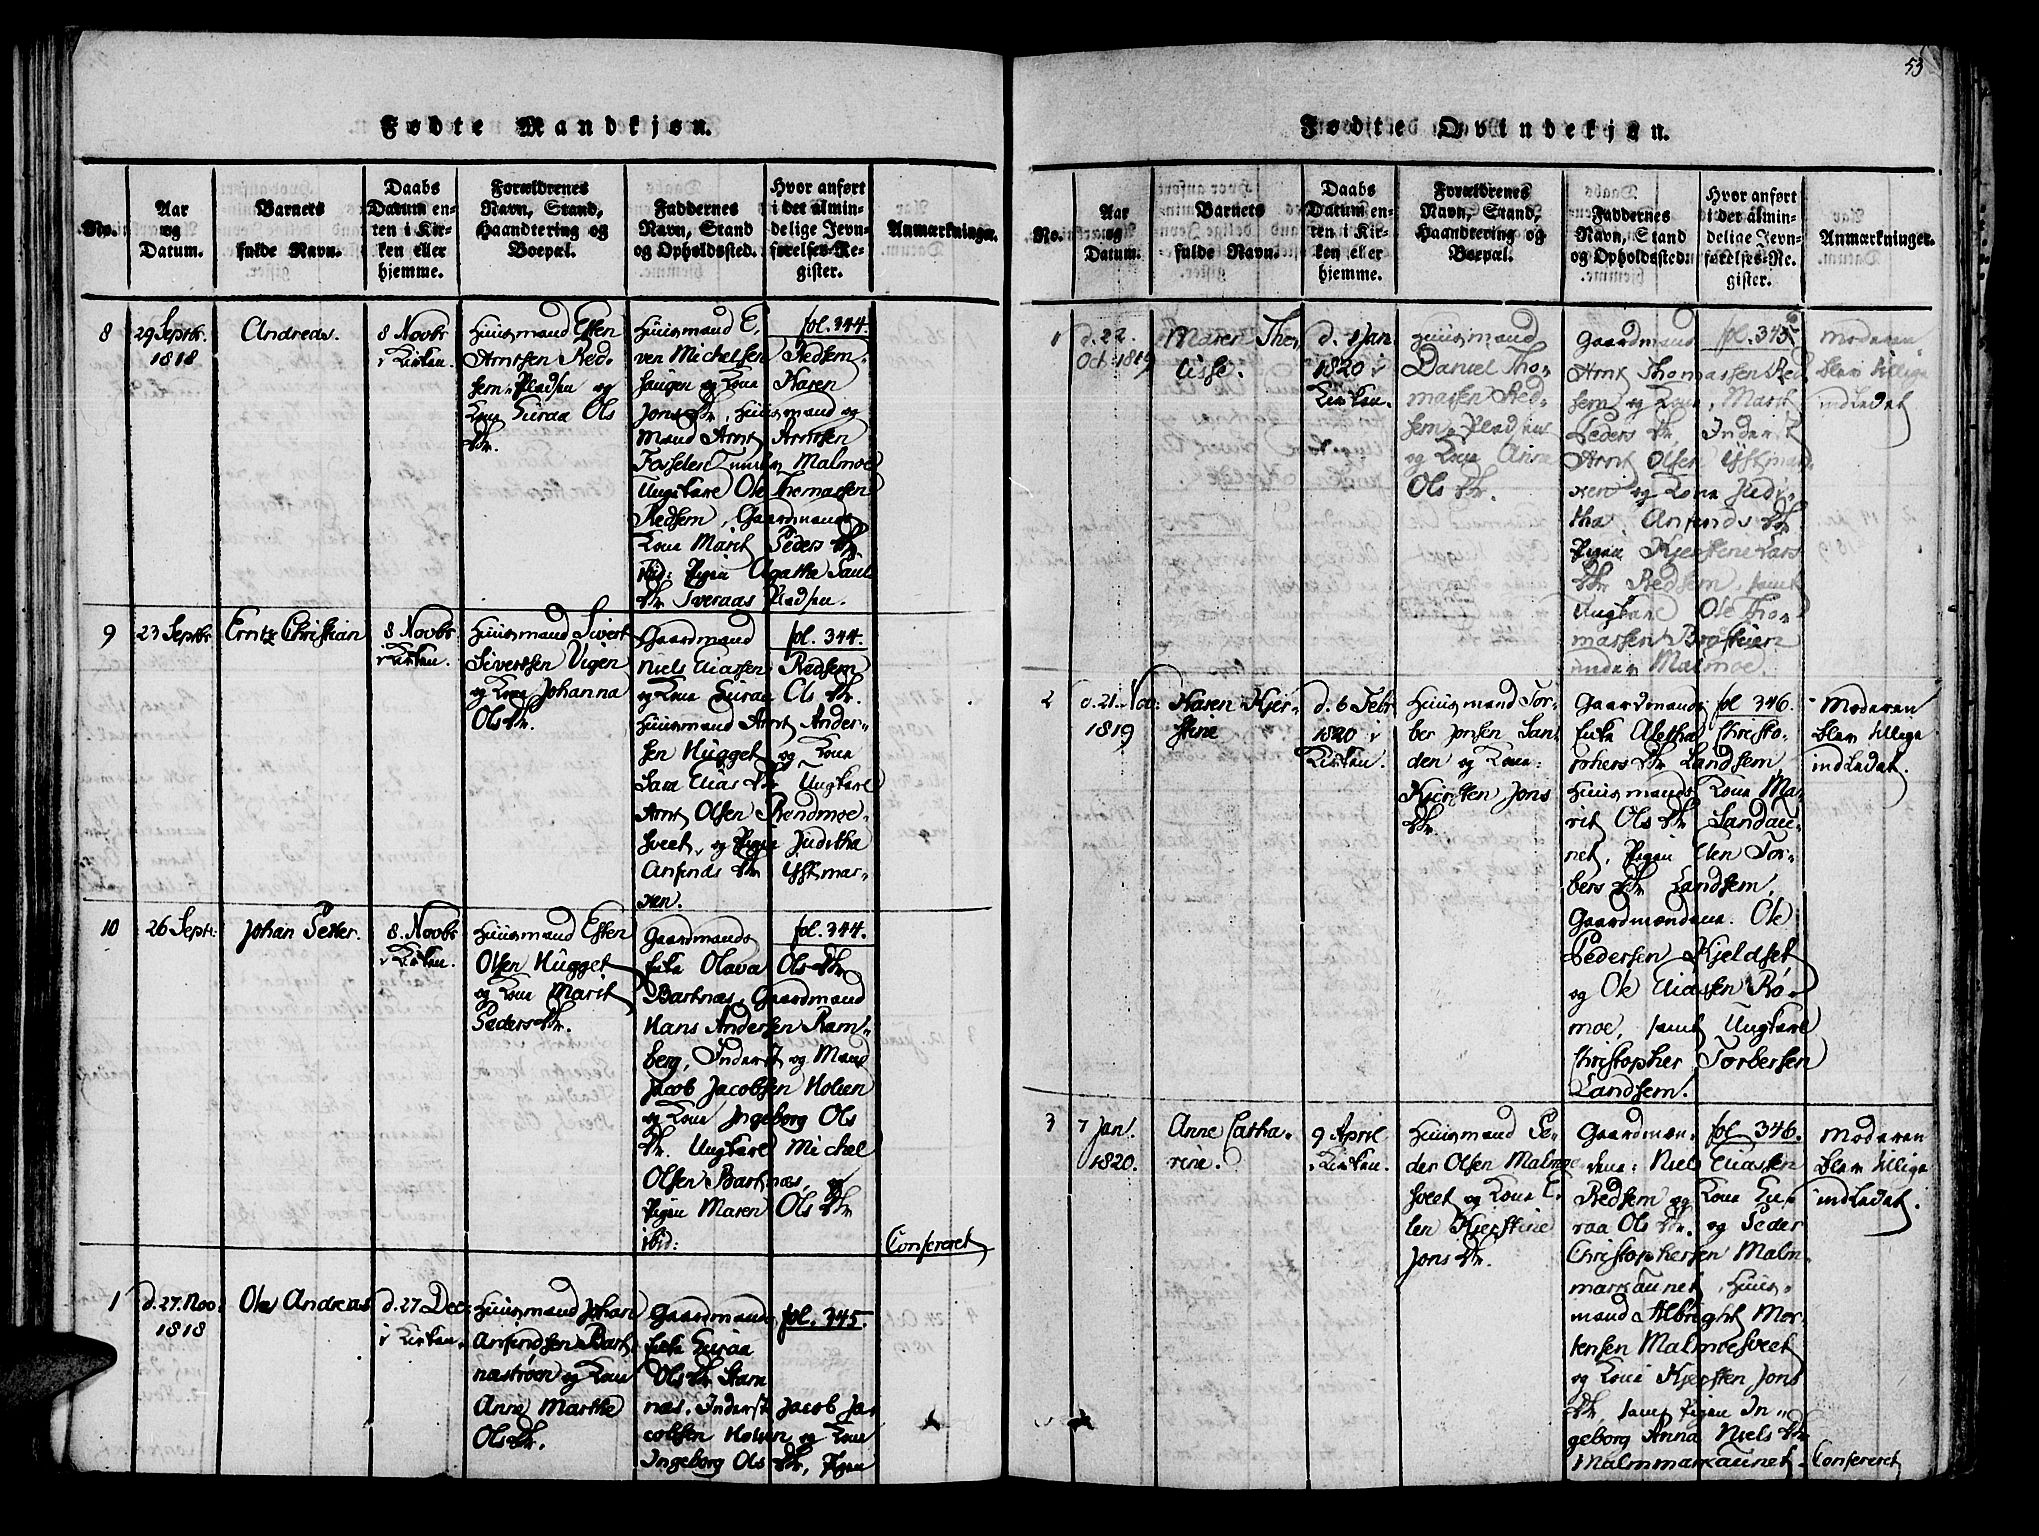 53
Fødte Mandkjøn.
No.
Aar
og
Datum.
Barnets
fulde Navn.
Daabs
Datum en-
ten i Kir-
ken eller
hjemme.
Forældrenes
Navn, Stand,
Haandtering og
Boepæl.
Faddernes
Navn, Stand
og Opholdssted.
Hvor anført
i det almin-
delige Jevn-
førelses-Re-
gister.
Anmærkninger.
8
29 Septbr.
1818
Andreas.
8 Novbr
i Kirken
Huusmand Esten
Arntsen Red-
sem-Pladsen og
Kone Guraa Ols
Dtr.
fol. 344.
Huusmand E-
ven Michelsen Redsem-
haugen og Kone Karen
Jons Dtr, Huusmand og
Mand Arnt Arntsen
under Malmoe
Ungkarl Ole Thomassen
Redsem, Gaardmands
Kone Marit Peders Dtr
ibid: Pigen Agathe Paul
Dtr Tveraas Pladsen.
9
23 Septbr
Erntz Christian
8 Novbr
i Kirken.
Huusmand Sivert
Sivertsen Vigen
og Kone Johanna
Ols Dtr.
fol. 344.
Gaardmand
Niels Eliassen Redsem
og Kone Guraa Ols Dtr.
Huusmand Arnt Ander-
sen Hugget og Kone
Sara Elias Dtr Ungkarl
Arnt Olsen Rendmoe-
hveet, og Pigen Juditha
Anfinds Dtr Ystmar-
ken.
10
26 Sept:
Johan Petter.
8. Novbr
i Kirken.
Huusmand Esten
Olsen Hugget
og Kone Marit
Peders Dtr.
fol. 344.
Gaardmands
Enke Olava Ols Dtr
Bartnæs, Gaardmand
Hans Andersen Ram-
berg, Inderst og Mand
Jacob Jacobsen Holien
og Kone Ingeborg Ols
Dtr. Ungkarl Michel
Olsen Bartnæs, og
Pigen Maren Ols Dtr
ibid:
Confereret
1
d. 27. Nov:
1818
Ole Andreas
d. 27 Dec:
i Kirken.
Huusmand Johan
Anfindsen Bart
næstrøen og Kone
Anne Marthe
Ols Dtr.
fol. 345.
Gaardmands
Enke Guraa
Ols Dtr Stam
næs. Inderst Jacob Ja-
cobsen Holien og Kone
Ingeborg Ols Dtr, Pigen
Fødte Qvindekjøn.
No.
Aar
og
Datum.
Barnets
fulde Navn.
Daabs
Datum en-
ten i Kir-
ken eller
hjemme.
Forældrenes
Navn, Stand,
Haandtering og
Boepæl.
Faddernes
Navn, Stand
og Opholdssted.
Hvor anført
i det almin-
delige Jevn-
førelses-Re-
gister.
Anmærkninger.
1
d. 22.
Oct: 1819
Maren Tho-
lisse.
d. 1 Jan.
1820 i
Kirken.
Huusmand
Daniel Tho-
massen Red-
sem-Pladsen
og Kone Anne
Ols Dtr.
fol. 345
Gaardmand
Arnt Thomassen Red
sem og Kone, Marit
Peders Dtr, Inderst
Arnt Olsen Ystmar
ken og Kone Judi-
tha Anfinds Dtr
Pigen Kjerstine Lars
Dtr Redsem, samt
Ungkarl Ole Tho-
massen Brøsteien
under Malmoe.
Moderen
blev tillige
indledet
2
d. 21. Nov:
1819
Karen Kjer-
stine
d. 6 Febr
1820 i
Kirken.
Huusmand Tor-
ber Jonsen Lan
den og Kone
Kjersten Jons
Dtr.
fol 346.
Gaardmands
Enke Aletha Christo-
phers Dtr Landsem
Huusmands Kone Ma-
rit Ols Dtr Sandau-
net, Pigen Elen Tor-
bers Dtr Landsem,
Gaardmændene Ole
Pedersen Kjeldset
og Ole Eliassen Rø-
moe, samt Ungkarl
Christopher Torbersen
Landsem.
Moderen
blev tillige
indledet.
3
7 Jan.
1820.
Anne Catha-
rine.
9 April
i Kirken.
Huusmand Pe-
der Olsen Malmoe
hveet og Kone E-
len Kjerstine
Jons Dtr.
fol 346.
Gaardmæn-
dene: Niels Eliassen
Redsem og Kone Gu-
raa Ols Dtr. og Peder
Christophersen Malm-
markaunet, Huus-
mand Albright Mor-
tensen Malmoehveet
og Kone Kjersten Jons
Dtr, samt Pigen In-
geborg Anna Niels Dtr
Malmmarkaunet.
Moderen
blev tillige
indledet.
Confereret